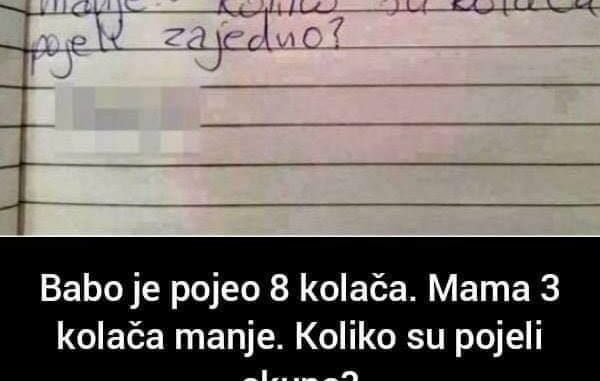 manje. Koliko su kolača
pojeli zajedno?
Babo je pojeo 8 kolača. Mama 3
kolača manje. Koliko su pojeli
skupa?